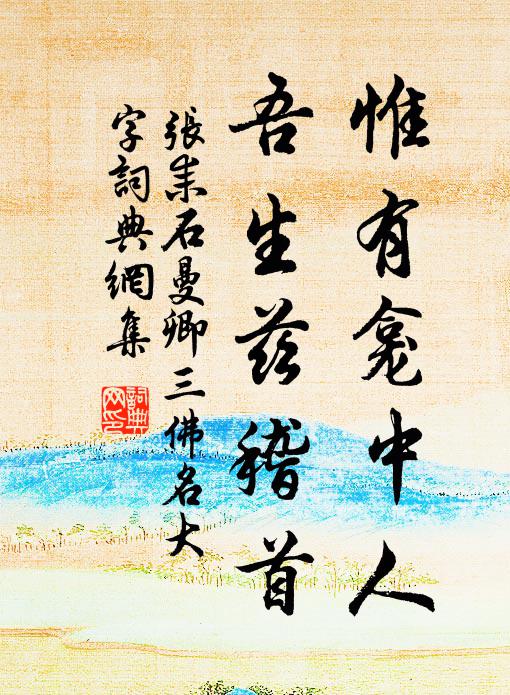 惟有龕中人
吾生茲稽首
張耒石曼卿三佛名大
字詞典網集
詞典網印